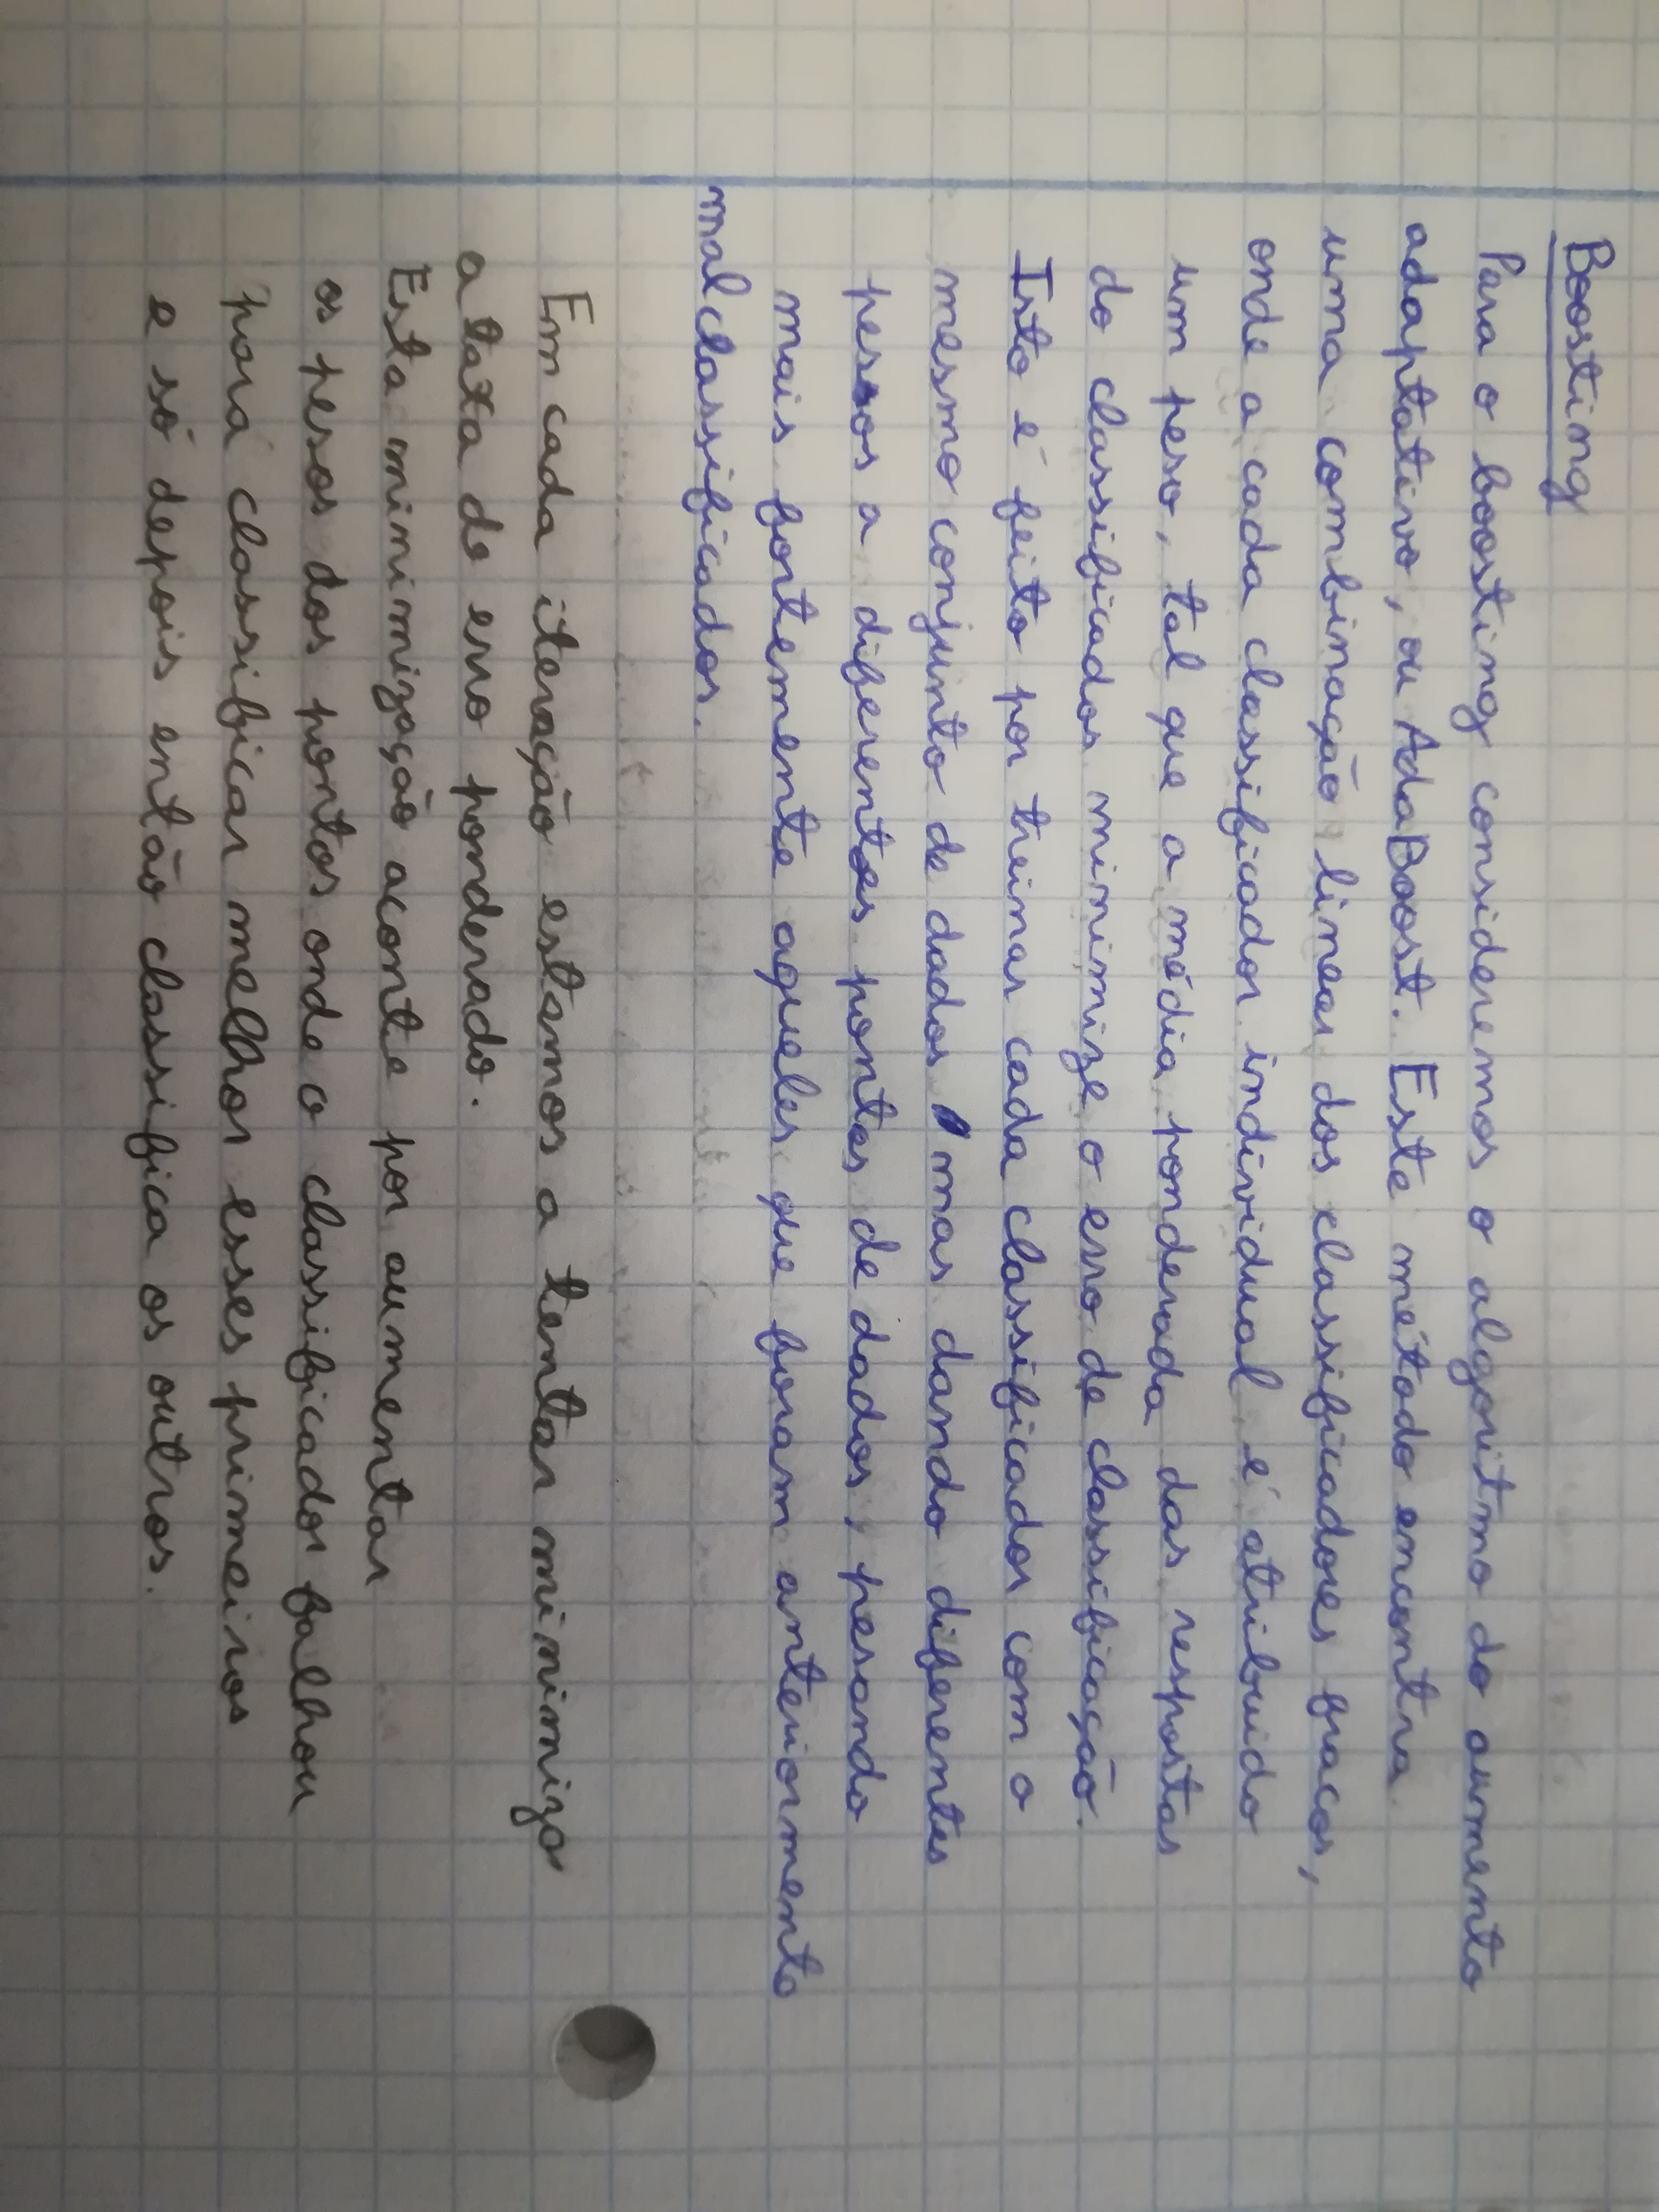 Boosting
Para o boosting consideremos o algoritmo do aumento
adaptativo, ou AdaBoost. Este método encontra
uma combinação linear dos classificadores fracos,
onde a cada classificador individual é atribuido
um peso, tal que a média ponderada das respostas
do classificador minimize o erro de classificação.
Isto é feito por treinar cada classificador com o
mesmo conjunto de dados mas dando diferentes
pesos a diferentes pontos de dados, pesando
mais fortemente aqueles que foram anteriormente
mal classificados.
Em cada iteração estamos a tentar minimizar
a taxa de erro ponderado.
Esta minimização aconte por aumentar
os pesos dos pontos onde o classificador falhou
para classificar melhor esses primeiros
e só depois então classifica os outros.